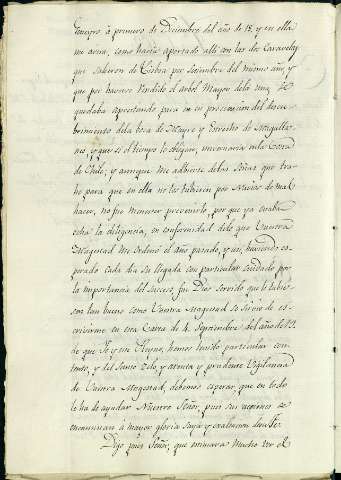 Geneyro á primero de Deciembre del año de 18, y en ella
me avisa, como havia aportado alli con las dos Caravelas
que salieron de Lisboa por Septiembre del mismo año, y
que por haverse rendido el arbol Mayor dela una, se
quedaba aprestando para ir en prosecucion del descu-
brimiento dela boca de Mayre y Estrecho de Magalla-
nes, y que si el tiempo le obligare, invernaria en la Costa
de Chile, y aunque me advierte delas Señas que tra-
he para que en ella no los tubiesen por Navios de mal
hacer, no fue menester prevenirlo, por que ya estaba
echa la diligencia, en conformidad delo que Vuestra
Magestad me ordenó el año pasado, y asi, haviendo es-
perado cada dia su llegada con particular cuidado por
la importancia del suceso, fue Dios servido que le tubie-
son tan bueno como Vuestra Magestad se sirve de es-
crivirme en esta Carta de 4 Septiembre del año de 19.
de que Yo y este Reyno, hemos tenido particular con-
tento, y del Santo Zelo, y atenta y prudente Vigilancia
de Vuestra Magestad, debemos esperar, que en todo
le ha de ayudar Nuestro Señor, pues sus acciones se
encaminan á mayor gloria suya y exaltacion de su Fe.
Dije pues Señor, que estimara mucho ver el